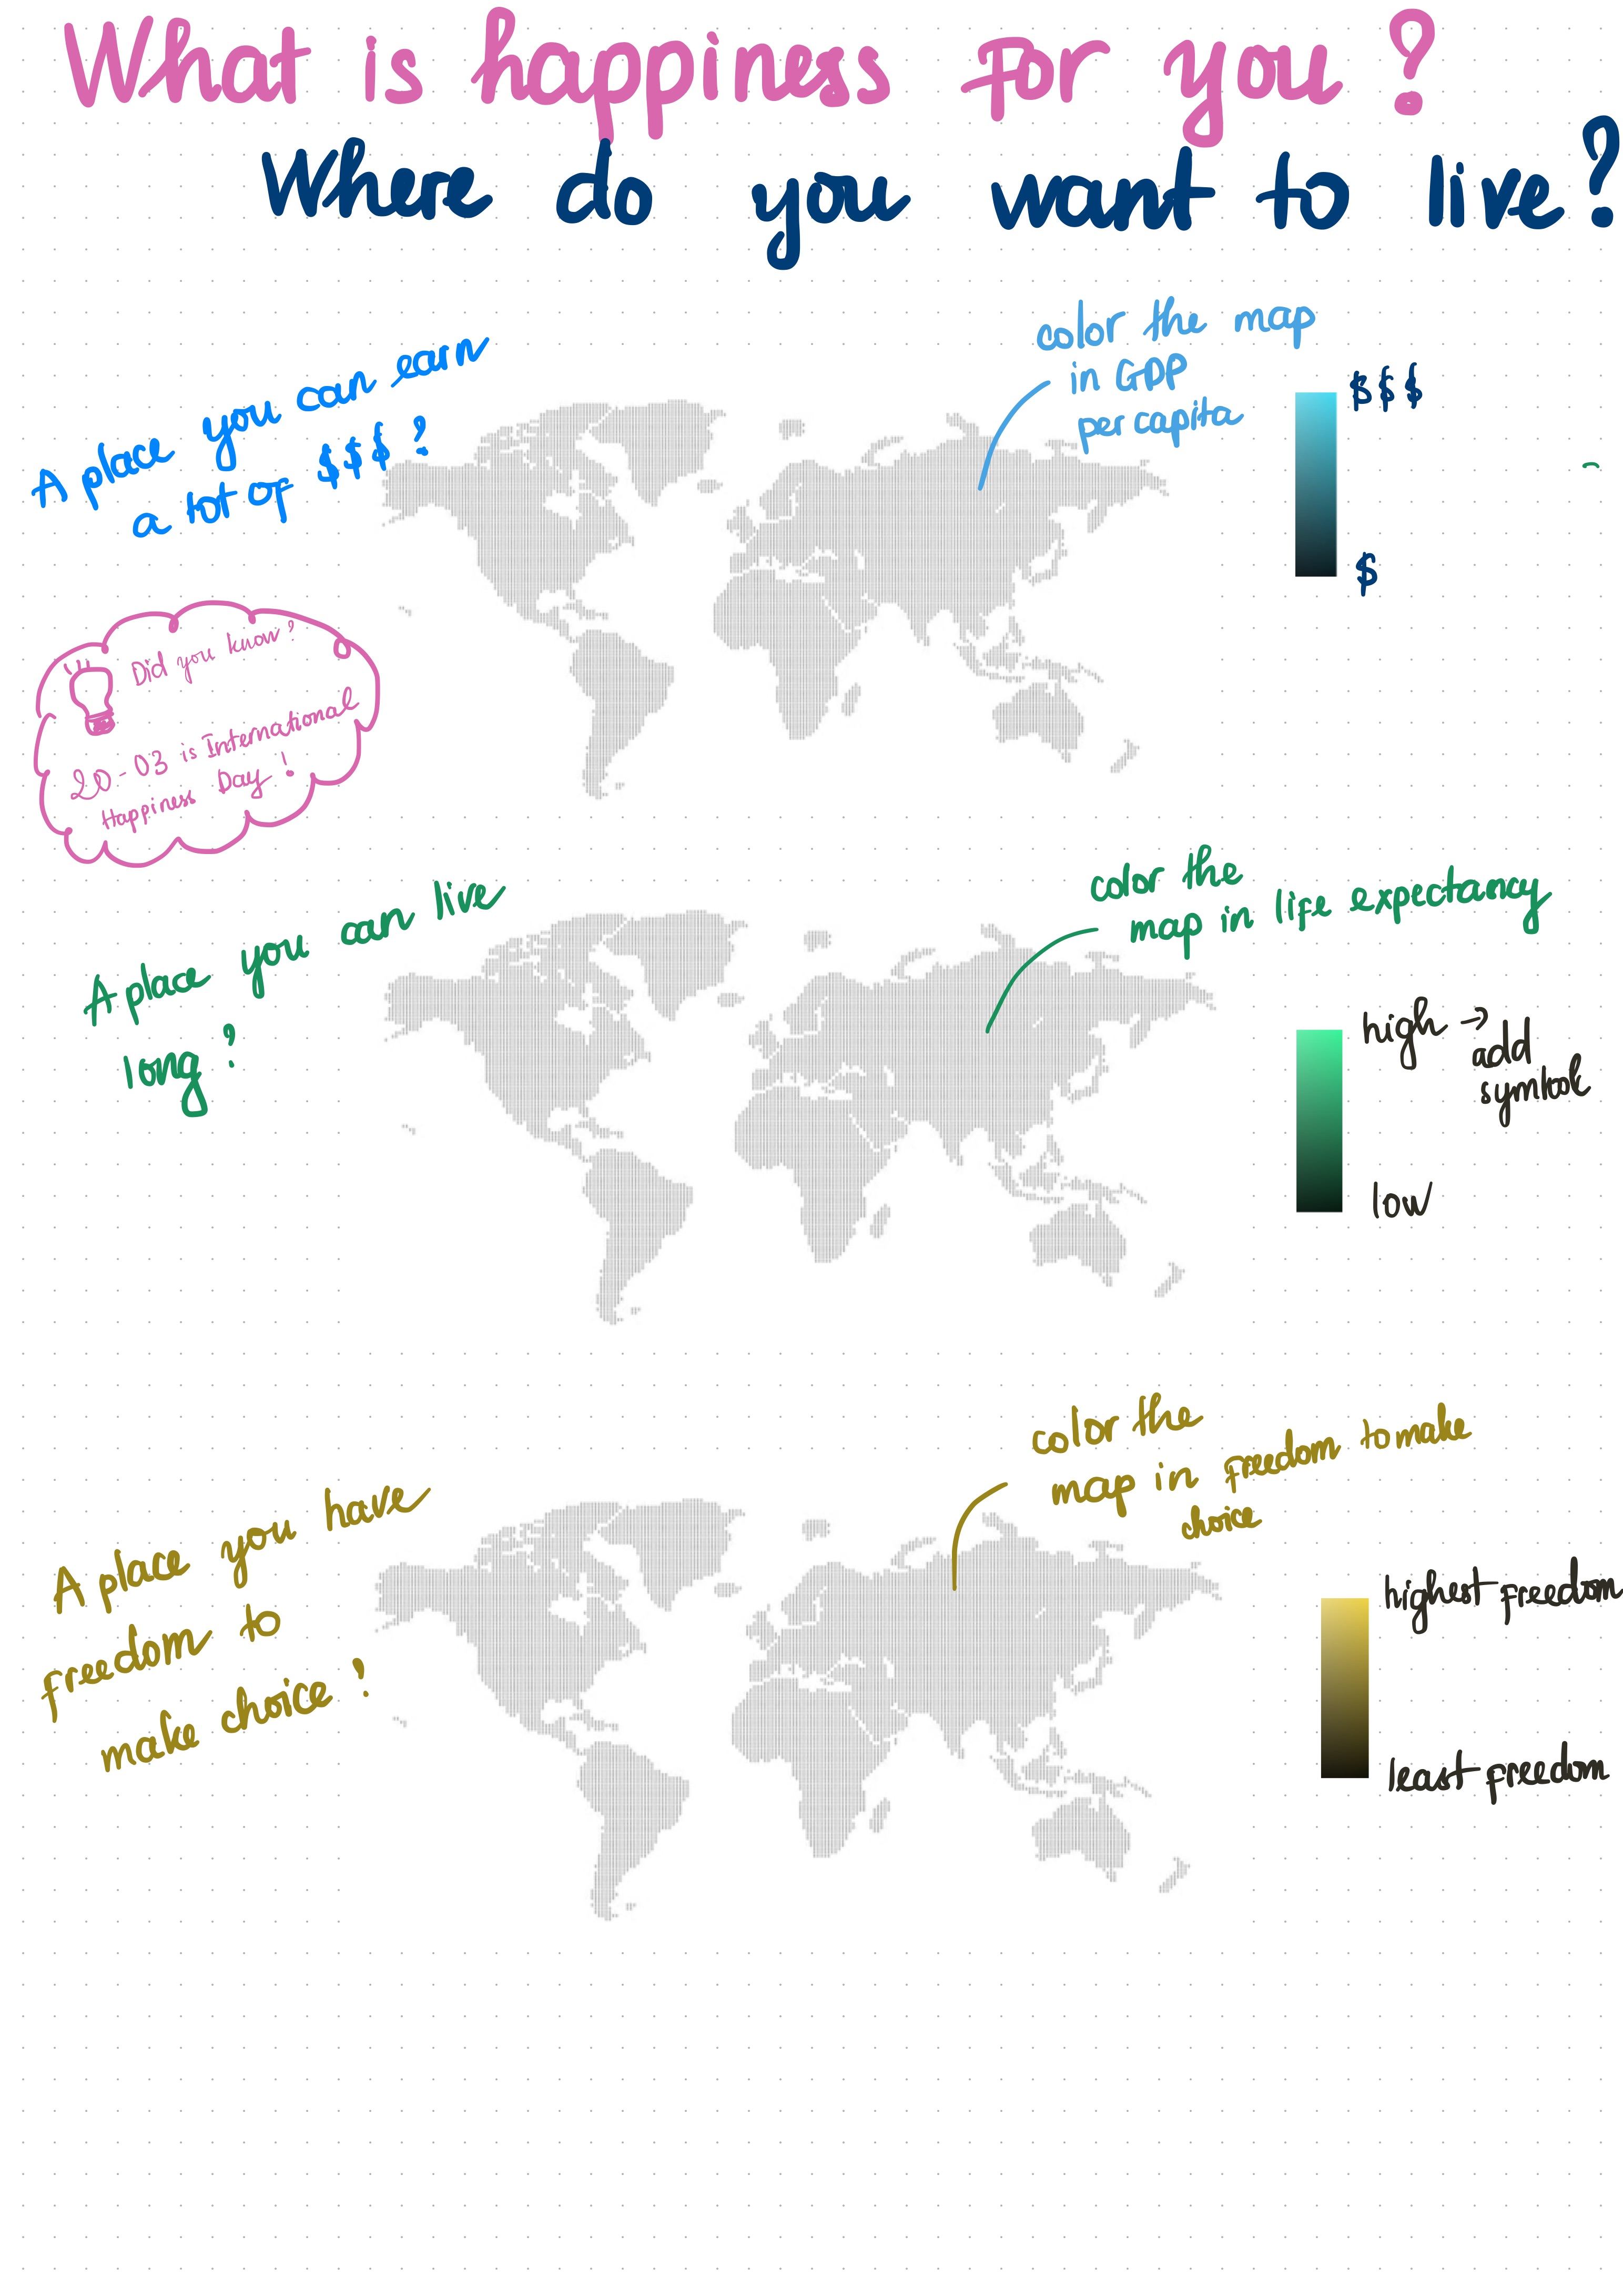 What is happiness for you?
Where do you want to live?
A place you can earn
a lot of $$$?
color the map
in GDP
per capita
$$$
$
Did you know?
20-03 is International
Happiness Day!
A place you can live
long?
color the
map in life expectancy
high → add
symbol
low
A place you have
freedom to
make choice?
color the
map in freedom to make
choice
highest freedom
least freedom